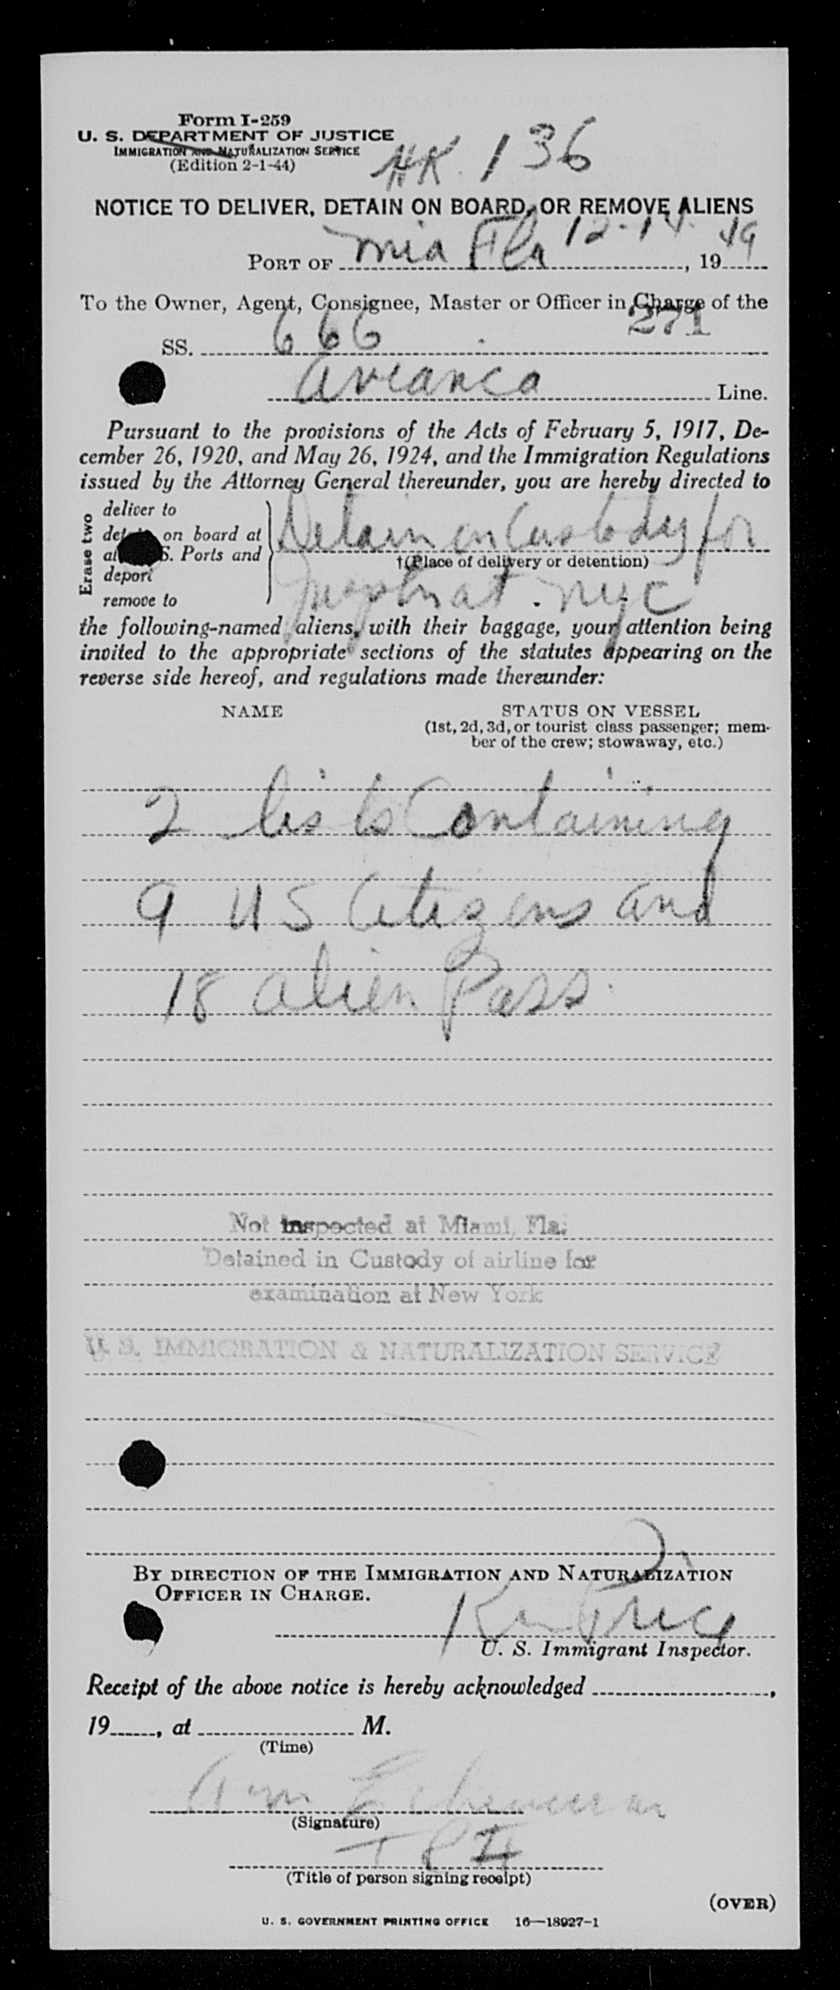 Form I-259
U. S. DEPARTMENT OF JUSTICE
IMMIGRATION AND NATURALIZATION SERVICE
(Edition 2-1-44)
HK. 136
NOTICE TO DELIVER, DETAIN ON BOARD, OR REMOVE ALIENS
PORT OF Mia Fla 12-14, 1949
To the Owner, Agent, Consignee, Master or Officer in Charge of the
271
SS. 666
Avianca Line.
Pursuant to the provisions of the Acts of February 5, 1917, De-
cember 26, 1920, and May 26, 1924, and the Immigration Regulations
issued by the Attorney General thereunder, you are hereby directed to
Erase two
deliver to
on board at
S. Ports and
deport
remove to
Detain in Custody for
†(Place of delivery or detention)
at. NYC
the following-named aliens, with their baggage, your attention being
invited to the appropriate sections of the statutes appearing on the
reverse side hereof, and regulations made thereunder:
NAME
STATUS ON VESSEL
(1st, 2d, 3d, or tourist class passenger; mem-
ber of the crew; stowaway, etc.)
2 lists Containing
9 US Citizens and
18 alien Pass.
Not inspected at Miami, Fla.
Detained in Custody of airline for
examination at New York
U. S. IMMIGRATION & NATURALIZATION SERVICE
BY DIRECTION OF THE IMMIGRATION AND NATURALIZATION
OFFICER IN CHARGE.
U. S. Immigrant Inspector.
Receipt of the above notice is hereby acknowledged ,
19 , at M.
(Time)
(Signature)
(Title of person signing receipt)
(OVER)
U. S. GOVERNMENT PRINTING OFFICE 16—18927-1